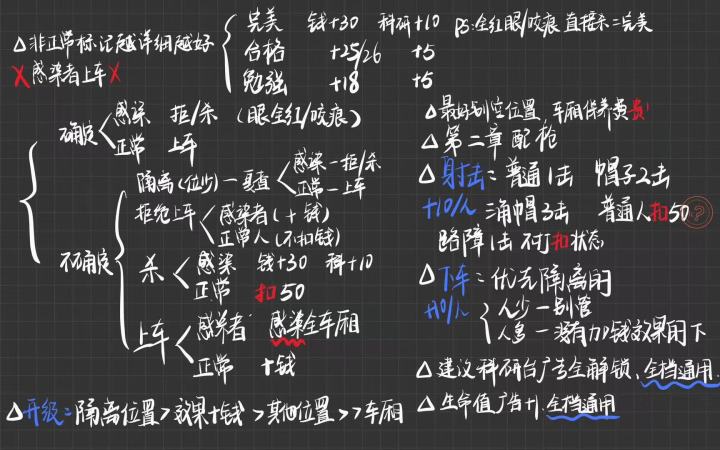 △非正常标记越详细越好
X感染者上车X
完美 钱+30 科研+10 PS:全红眼/咬痕 直接杀=完美
合格 +25/26 +5
勉强 +18 +5
确定
感染 拒/杀 (眼全红/咬痕)
正常 上车
不确定
隔离(位少)一复查
感染一拒/杀
正常一上车
拒绝上车
感染者(+钱)
正常人(不扣钱)
杀
感染 钱+30 科+10
正常 扣50
上车
感染者 感染全车厢
正常 +钱
△升级:隔离位置>效果+钱>其他位置>>车厢
△最好别空位置,车厢保养费贵!
△第二章配枪
△射击:普通1击 帽子2击
+10/人 涌帽3击 普通人扣50?
路障1击 不打扣状态
△下车:优先隔离间
+10/人
人少一别管
人多一没有加钱效果的下
△建议科研台广告全解锁、全档通用.
△生命值广告+1.全档通用